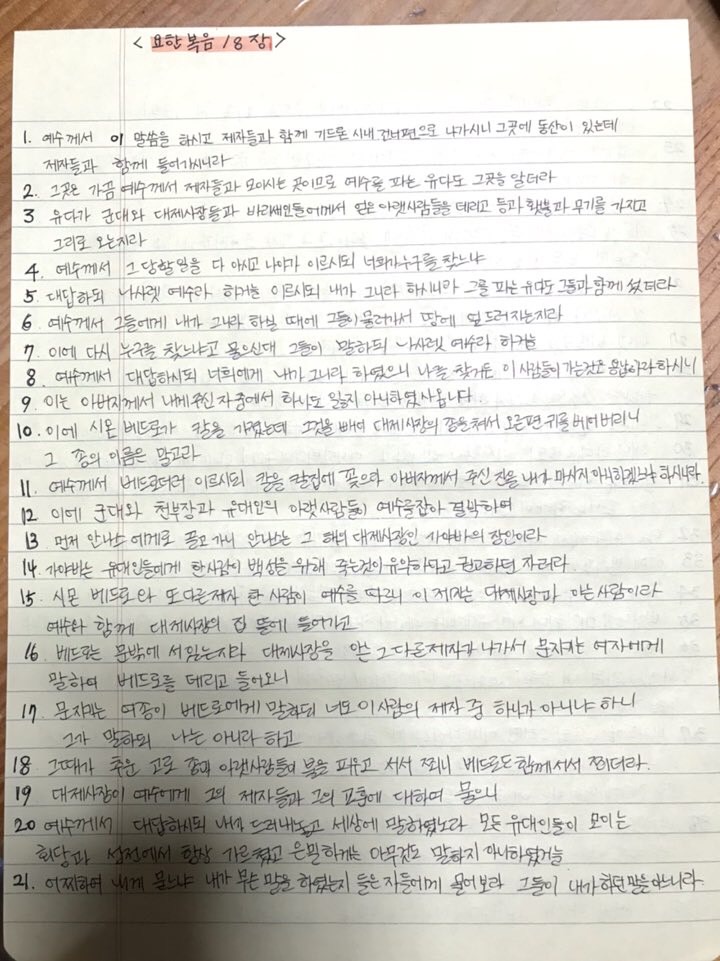 < 요한복음 18장 >
1. 예수께서 이 말씀을 하시고 제자들과 함께 기드론 시내 건너편으로 나가시니 그곳에 동산이 있는데
제자들과 함께 들어가시니라
2. 그곳은 가끔 예수께서 제자들과 모이시는 곳이므로 예수를 파는 유다도 그곳을 알더라
3 유다가 군대와 대제사장들과 바리새인들에게서 얻은 아랫사람들을 데리고 등과 횃불과 무기를 가지고
그리로 오는지라
4. 예수께서 그 당할 일을 다 아시고 나아가 이르시되 너희가 누구를 찾느냐
5. 대답하되 나사렛 예수라 하거늘 이르시되 내가 그니라 하시니라 그를 파는 유다도 그들과 함께 섰더라
6 예수께서 그들에게 내가 그니라 하실 때에 그들이 물러가서 땅에 엎드러지는지라
7. 이에 다시 누구를 찾느냐고 물으신대 그들이 말하되 나사렛 예수라 하거늘
8. 예수께서 대답하시되 너희에게 내가 그니라 하였으니 나를 찾거든 이 사람들이 가는것은 용납하라 하시니
9 이는 아버지께서 내게 주신 자 중에서 하나도 잃지 아니하였사옵나다
10. 이에 시몬 베드로가 칼을 가졌는데 그것을 빼어 대제사장의 종을 쳐서 오른편 귀를 베어버리니
그 종의 이름은 말고라
11. 예수께서 베드로더러 이르시되 칼을 칼집에 꽂으라 아버지께서 주신 잔을 내가 마시지 아니하겠느냐 하시니라.
12 이에 군대와 천부장과 유대인의 아랫사람들이 예수를 잡아 결박하여
13 먼저 안나스에게로 끌고 가니 안나스는 그 해의 대제사장인 가야바의 장인이라
14. 가야바는 유대인들에게 한사람이 백성을 위해 죽는것이 유익하다고 권고하던 자러라
15. 시몬 베드로와 또 다른 제자 한 사람이 예수를 따르니 이 제자는 대제사장과 아는 사람이라
예수와 함께 대제사장의 집 뜰에 들어가고
16 베드로는 문밖에 서있는지라 대제사장을 아는 그 다른 제자가 나가서 문지키는 여자에게
말하여 베드로를 데리고 들어오니
17. 문지키는 여종이 베드로에게 말하되 너도 이 사람의 제자 중 하나가 아니냐 하니
그가 말하되 나는 아니라 하고
18 그때가 추운 고로 종과 아랫사람들이 불을 피우고 서서 쬐니 베드로도 함께 서서 쬐더라.
19 대제사장이 예수에게 그의 제자들과 그의 교훈에 대하여 물으니
20 예수께서 대답하시되 내가 드러내놓고 세상에 말하였노라 모든 유대인들이 모이는
회당과 성전에서 항상 가르쳤고 은밀하게는 아무것도 말하지 아니하였거늘
21. 어찌하여 내게 묻느냐 내가 무슨 말을 하였는지 들은 자들에게 물어보라 그들이 내가 하던 말을 아느니라.